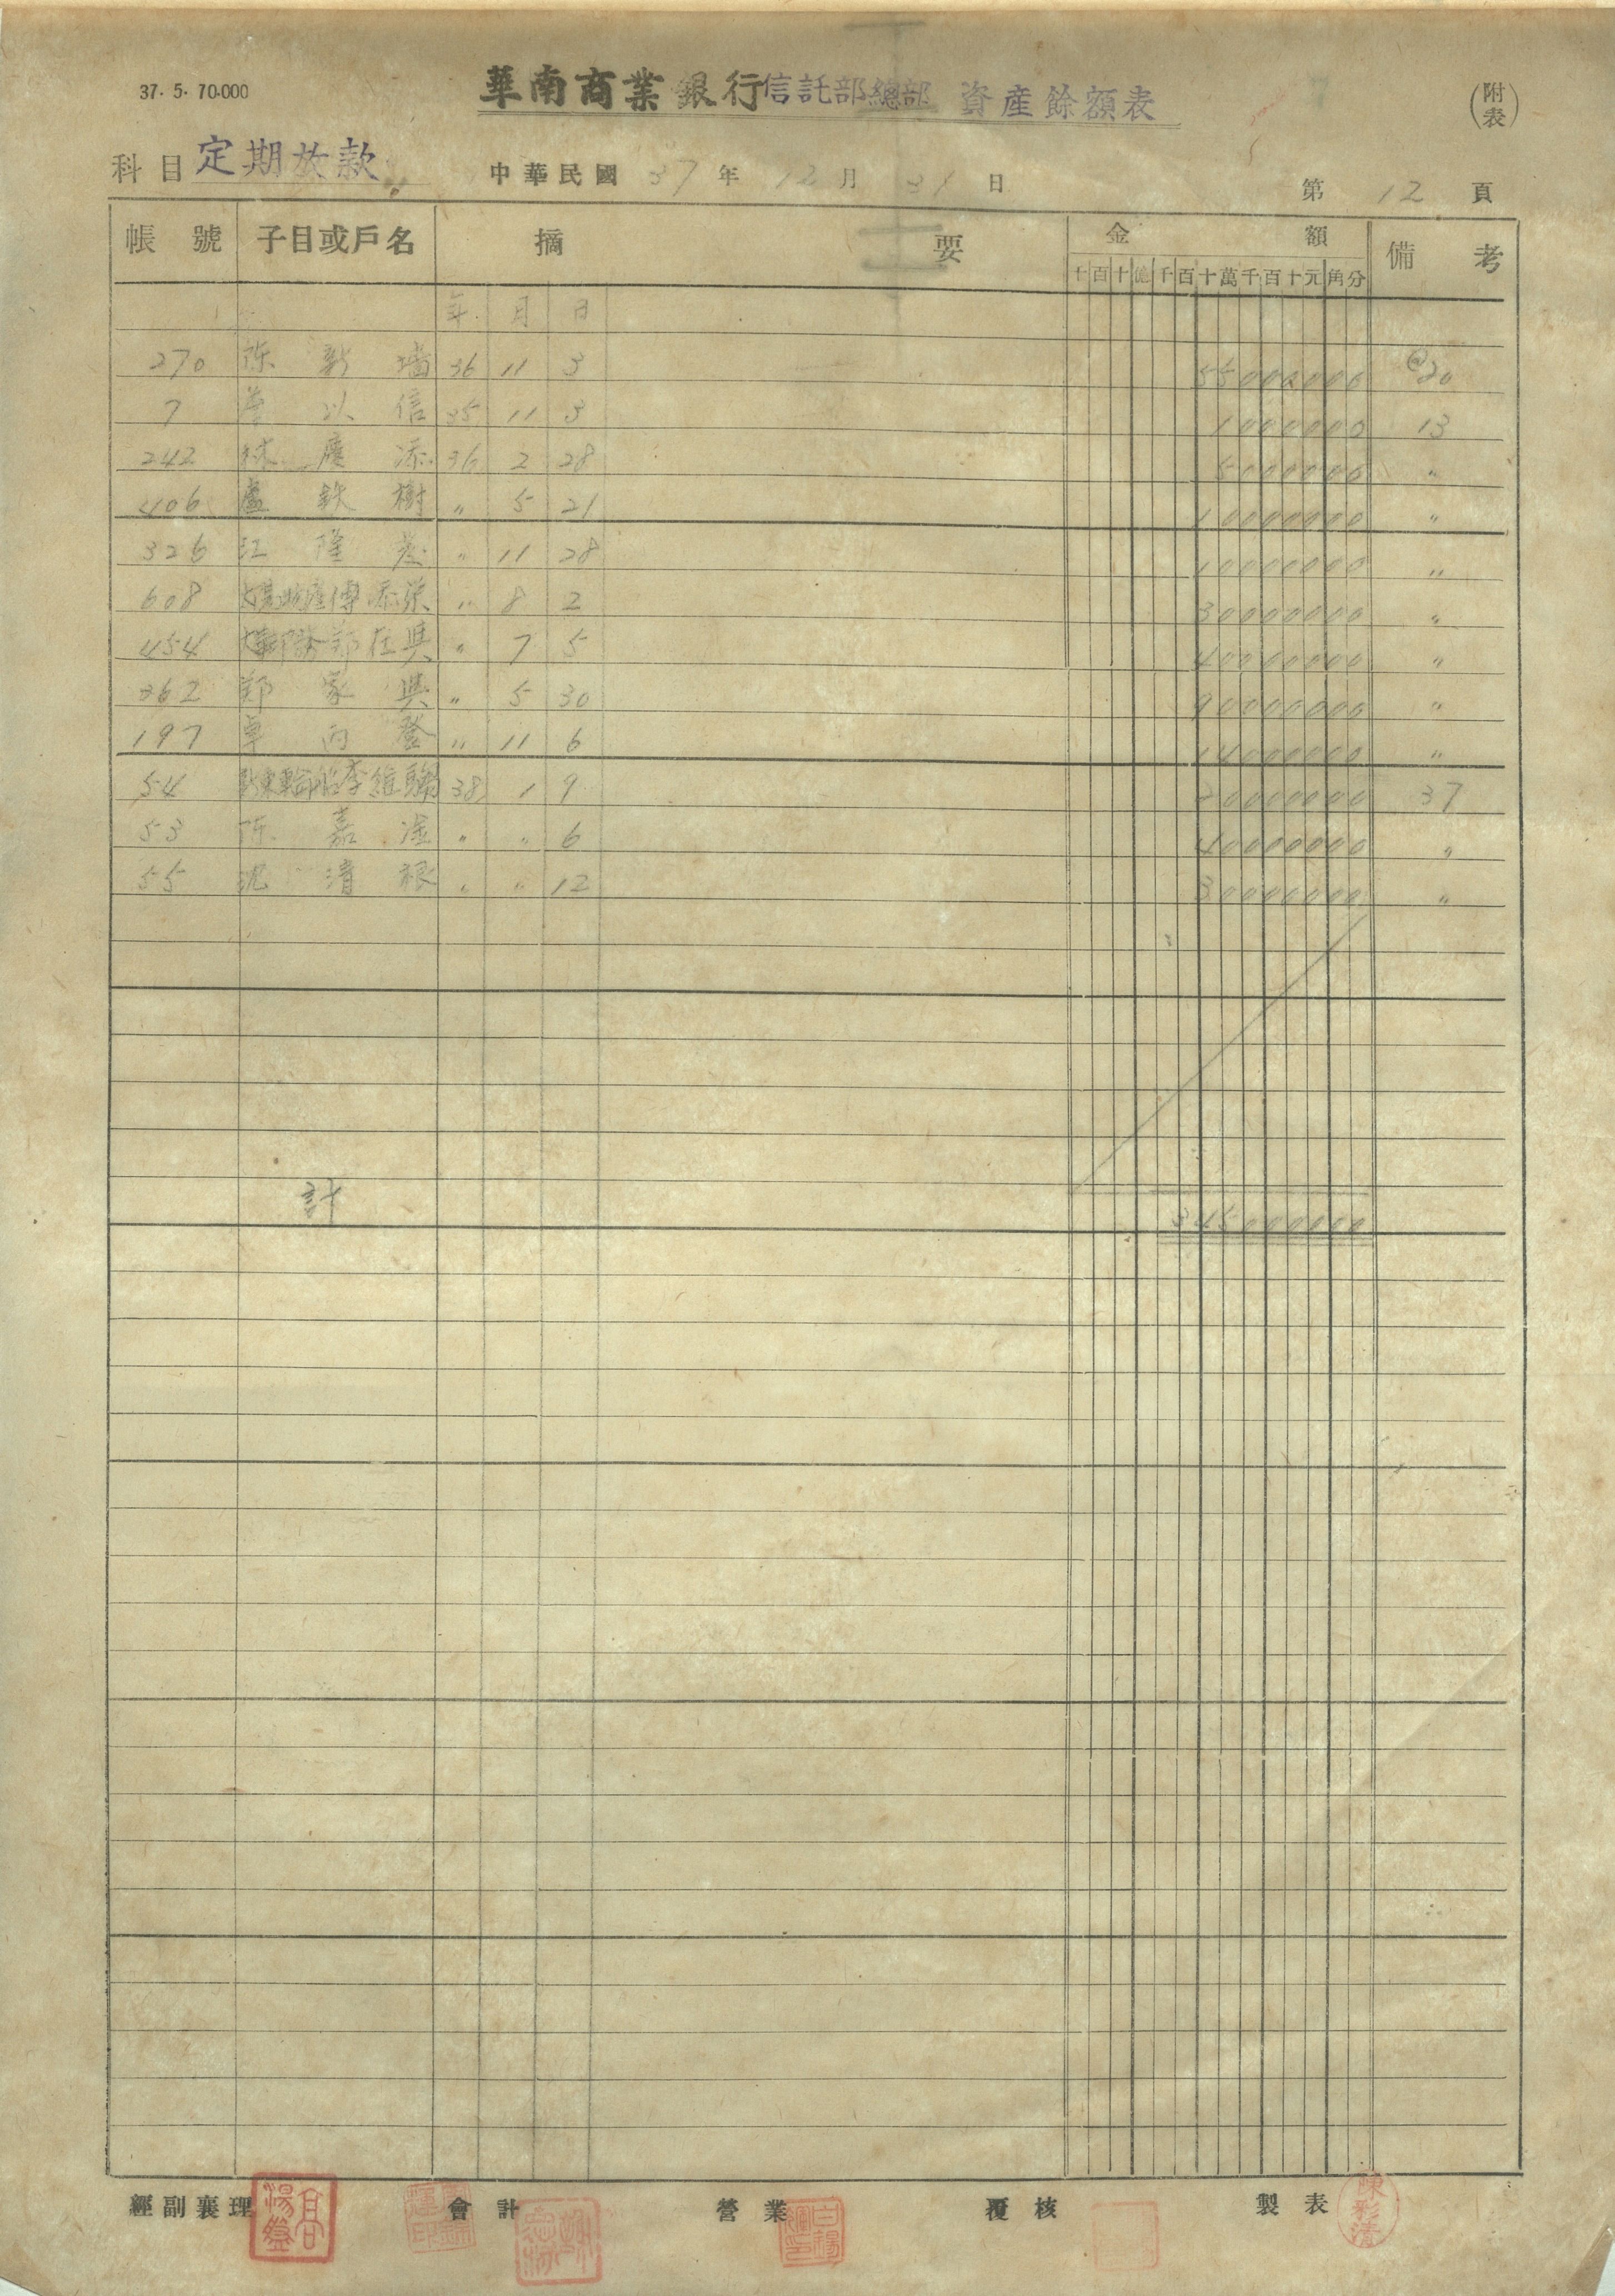 37. 5. 70.000
華南商業銀行信託部總部 資產餘額表
(附表)
科目 定期放款 中華民國 37 年 12 月 31 日
第 12 頁
帳號 子目或戶名 摘要 金額 備考
千百十億千百十萬千百十元角分
年 月 日
270 陈 新 墻 36 11 3 55000000 @20
7 以 信 35 11 3 1000000 13
242 林 慶 添 36 2 28 5000000 〃
406 盧 欽 樹 〃 5 21 10000000 〃
326 江 隆 〃 11 28 10000000 〃
608 傅 添 〃 8 2 30000000 〃
454 鄭 在 興 〃 7 5 40000000 〃
362 鄭 家 興 〃 5 30 90000000 〃
197 卓 丙 登 〃 11 6 14000000 〃
54 李維聯 38 1 9 20000000 37
53 陈 嘉 〃 〃 6 40000000 〃
55 沈 清 根 〃 〃 12 30000000 〃
計 345000000
經副襄理 會計 營業 覆核 製表
陳彩清